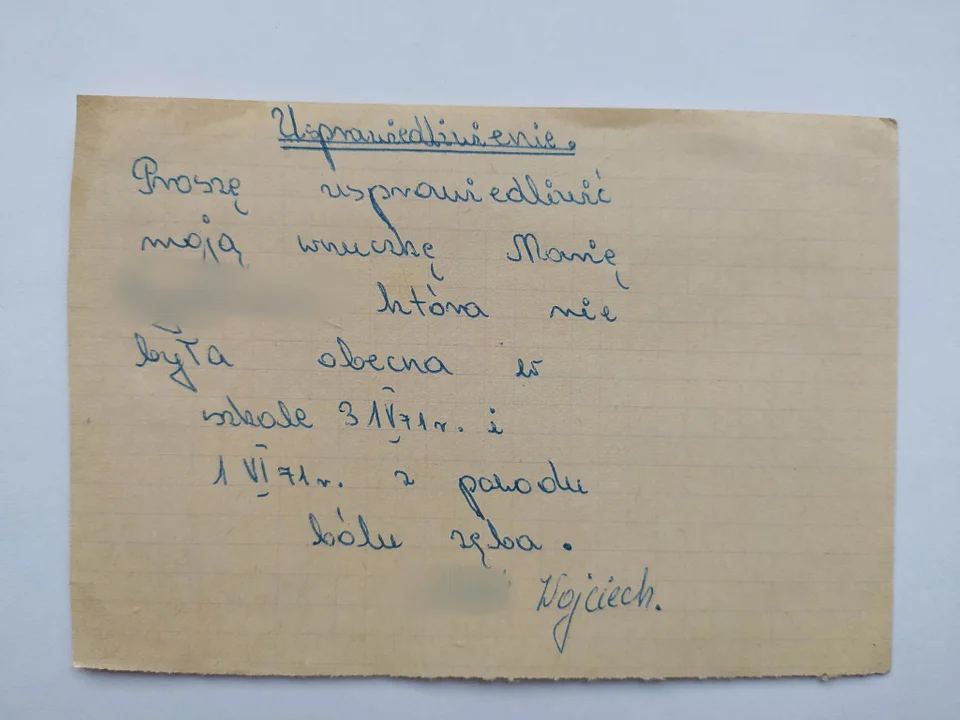 Usprawiedliwienie.
Proszę usprawiedliwić
moją wnuczkę Manię
która nie
była obecna w
szkole 31 V 71 r. i
1 VI 71 r. z powodu
bólu zęba.
Wojciech.